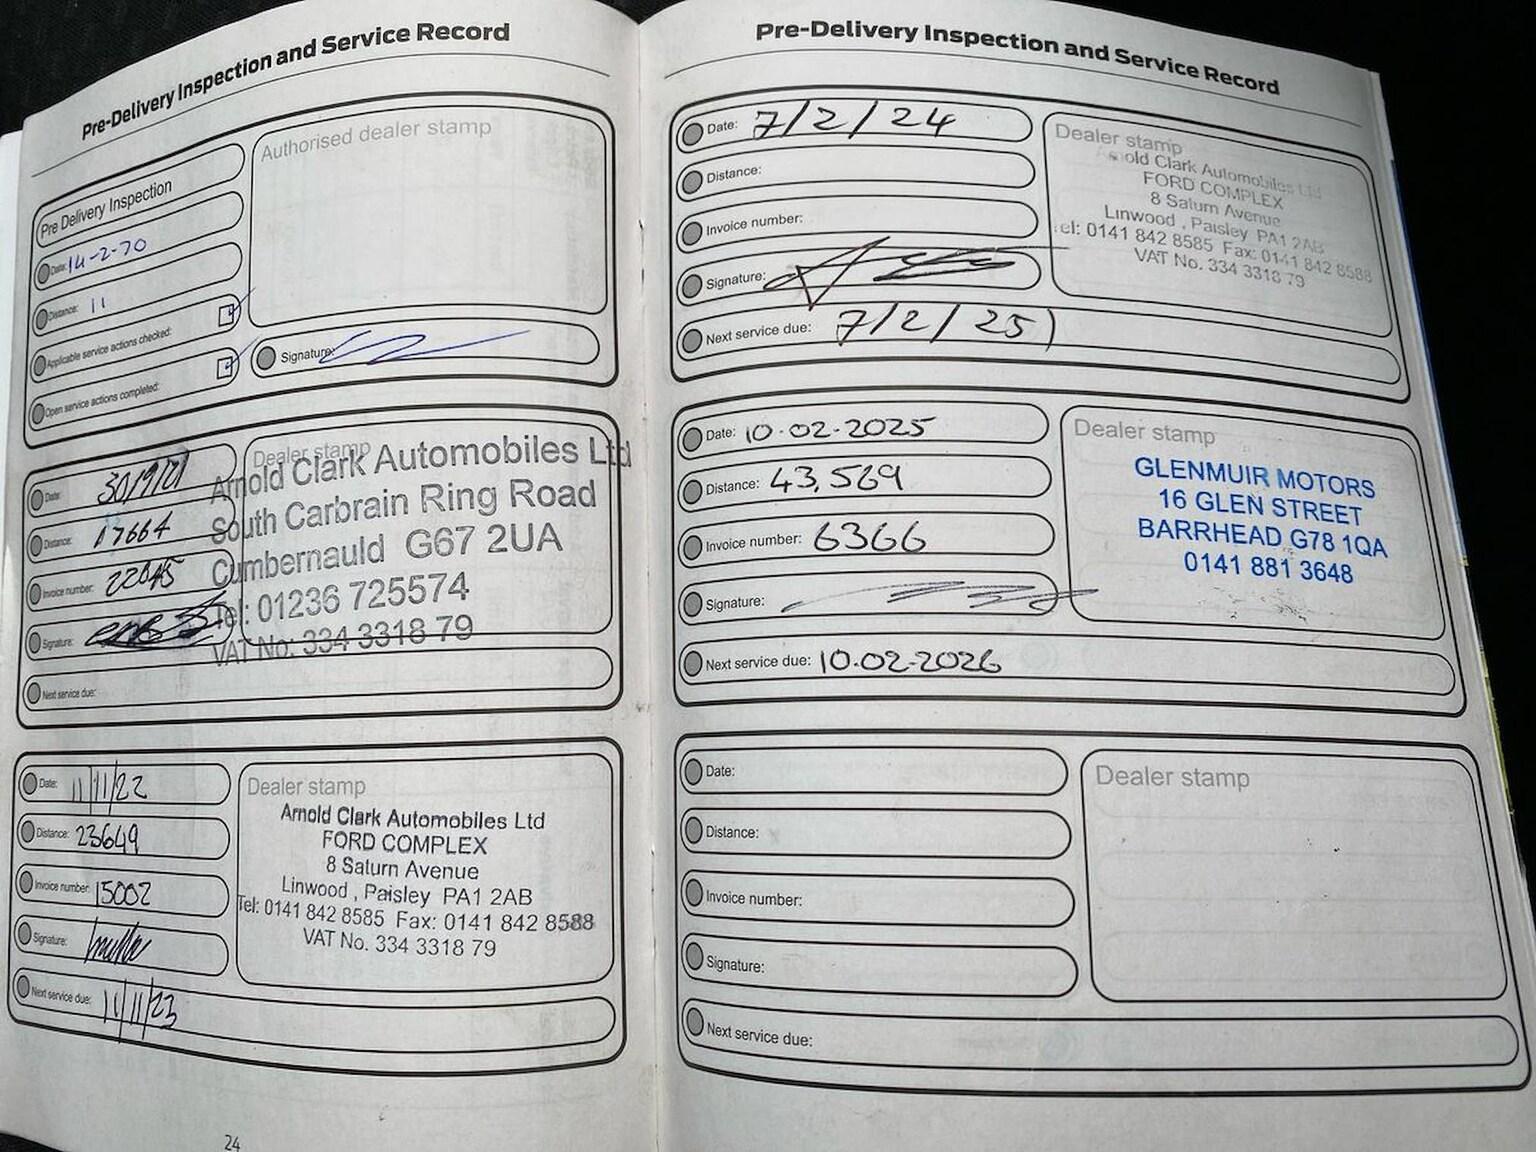 Pre-Delivery Inspection and Service Record
Pre Delivery Inspection
Date: 14-2-70
Distance: 11
Applicable service actions checked:
Open service actions completed:
Authorised dealer stamp
Signature:
Date: 30/9/21
Distance: 17664
Invoice number:
Signature:
Next service due:
Dealer stamp
Arnold Clark Automobiles Ltd
South Carbrain Ring Road
Cumbernauld G67 2UA
Tel: 01236 725574
VAT No: 334 3318 79
Date: 11/11/22
Distance: 23649
Invoice number: 15002
Signature:
Next service due: 11/11/23
Dealer stamp
Arnold Clark Automobiles Ltd
FORD COMPLEX
8 Saturn Avenue
Linwood , Paisley PA1 2AB
Tel: 0141 842 8585 Fax: 0141 842 8588
VAT No. 334 3318 79
24
Pre-Delivery Inspection and Service Record
Date: 7/2/24
Distance:
Invoice number:
Signature:
Next service due: 7/2/25
Dealer stamp
Arnold Clark Automobiles Ltd
FORD COMPLEX
8 Saturn Avenue
Linwood , Paisley PA1 2AB
Tel: 0141 842 8585 Fax: 0141 842 8588
VAT No. 334 3318 79
Date: 10.02.2025
Distance: 43,569
Invoice number: 6366
Signature:
Next service due: 10.02.2026
Dealer stamp
GLENMUIR MOTORS
16 GLEN STREET
BARRHEAD G78 1QA
0141 881 3648
Date:
Distance:
Invoice number:
Signature:
Next service due:
Dealer stamp